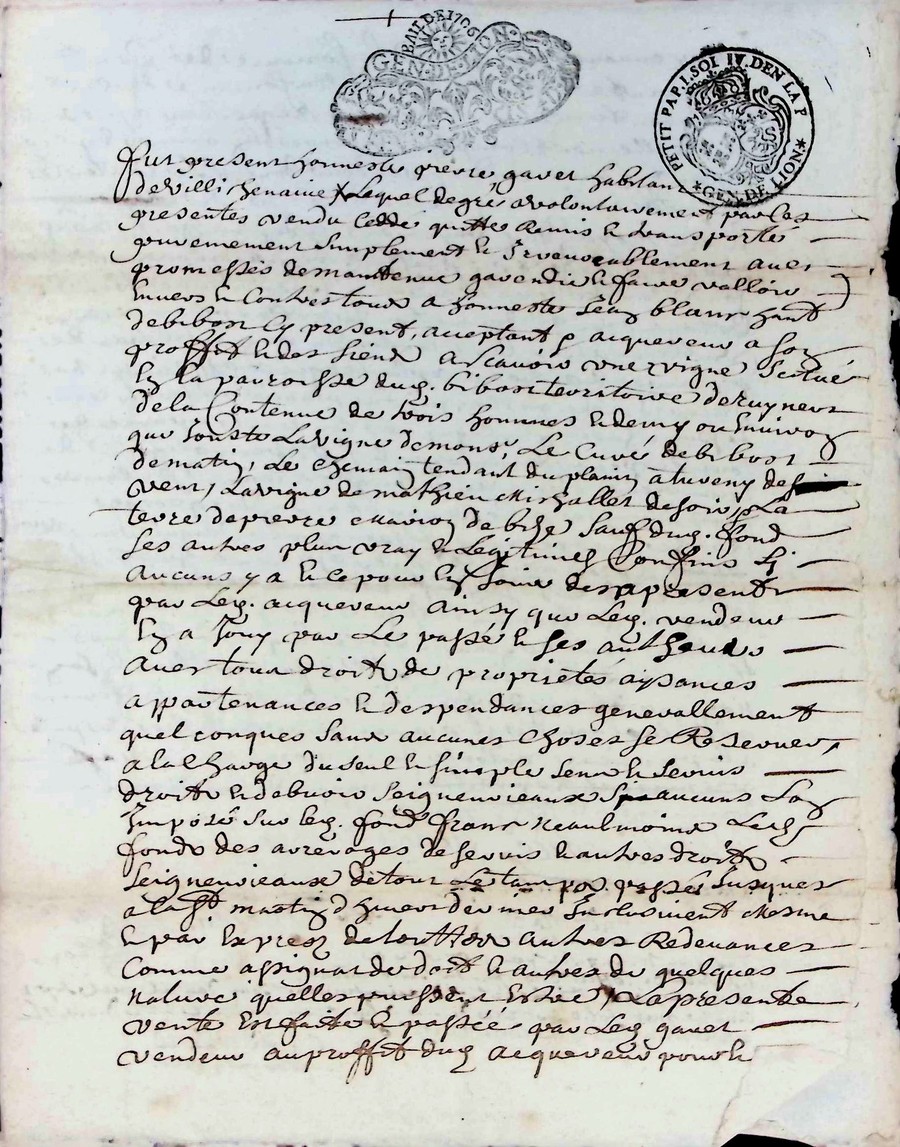 BAIL DE 1706
GEN·DE·LION
PETIT PAP. 1. SOL IV. DEN LA P
*GEN·DE LION*
Fut present honneste pierre gavet habitant
de villi chenaive Lequel de gré a volontairement par Les
presentes vendu Ceddé quitté Remis & transporté
purement simplement & Irrevocablement avec
promesses de maintenir garendir & faire valloir
Envers & Contre tous a honneste Jean blanc
de bibost Cy present, acceptant & acquereur a son
proffit & des siens Ascavoir une vigne Scitué
En la parroisse dug. bibost territoire de
de la Contenue de trois hommes & demy ou Environ
qui Jouste La vigne de mons.r Le Curé de bibost
de matin, Le Chemin tendant du a de
vent, La vigne de mathieu de soir, La
terre de pierre de bize Sauf dug. fond
Ses autres plus vray & Legitimes Confins Si
aucuns y a & ce pour En Jouir des a present
par Leg. acquereur Ainsy que Leg. vendeur
En a Jouy par Le passé & ses autheurs
avec tous droits de proprietés aysances
appartenances & despendances generallement
quelconques sans aucunes Choses se Reserver,
a la Charge du seul & simple Sens & Servis
droits & debvoirs Seigneurieaux Si aucuns
Imposé sur leg. fond franc neaulmoins Led.
fonds des arrerages de servis & autres droits
Seigneurieaux de tout Le temps passés Jusques
a la St martin d'hiver dernier Inclusivent mesme
& par Exprez de toutes autres Redevances
Comme assignat de dot & autres de quelques
nature quelles puissent Estre, La presente
vente Est faite & passée par Leg gavet
vendeur au proffit dug acquereur pour &